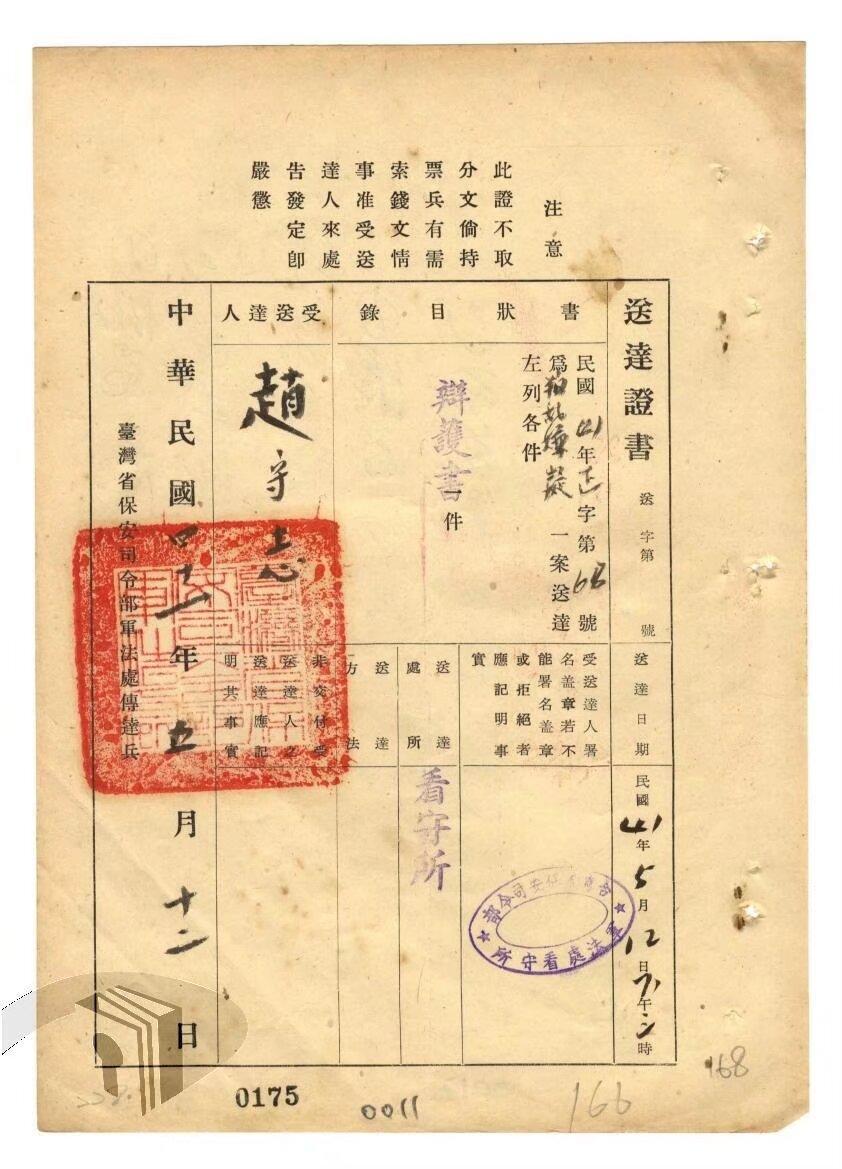 注意
此證不取
分文倘持
票兵有需
索錢文情
事准受送
達人來處
告發定卽
嚴懲
送達證書
送字第 號
送達日期
民國41年5月12日下午 時
書狀目錄
民國41年 字第68號
爲 一案送達
左列各件
辯護書一件
受送達人署
名蓋章若不
能署名蓋章
或拒絕者
應記明事
實
台灣省保安司令部
軍法處看守所
送達處所
看守所
送達方法
受送達人
趙守志
非交付受
送達人之
送達應記
明其事實
中華民國四十一年五月十二日
臺灣省保安司令部軍法處傳達兵
0175
0011
166
168